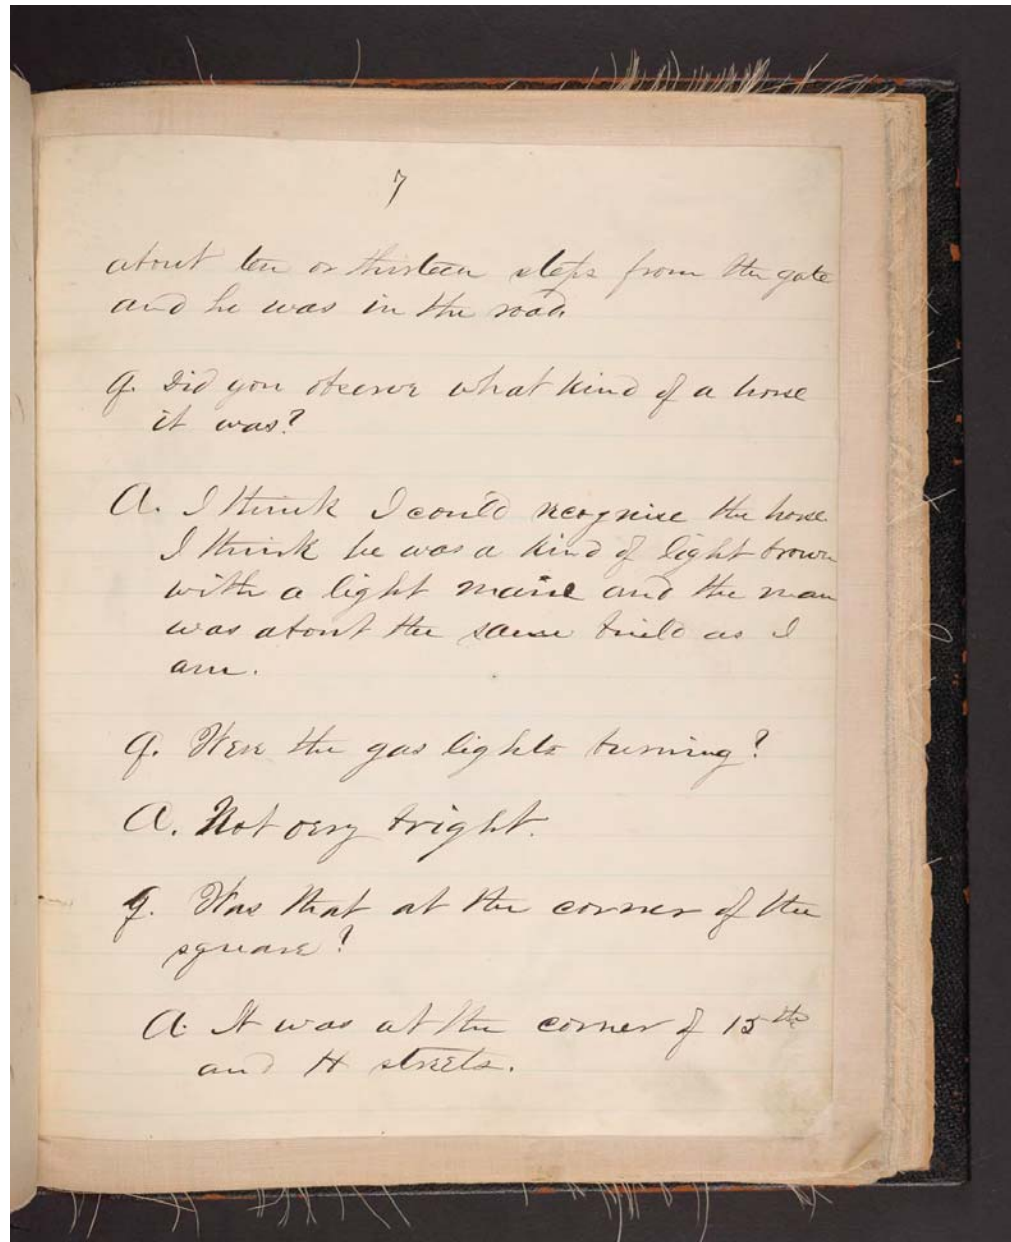 7
about ten or thirteen steps from the gate
and he was in the road.
Q. Did you observe what kind of a horse
it was?
A. I think I could recognise the horse.
I think he was a kind of light brown
with a light maine and the man
was about the same build as I
am.
Q. Were the gas lights burning?
A. Not very bright.
Q. Was that at the corner of the
square?
A. It was at the corner of 15th
and H streets.